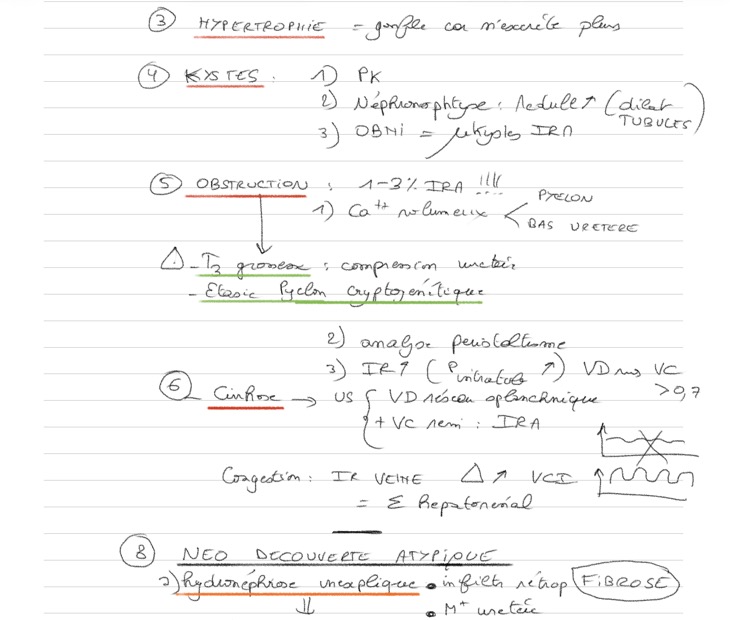 ③ HYPERTROPHIE = gonfle car n'excrète plus
④ KYSTES : 1) PK
2) Néphronophtyse : medull ↗ (dilat TUBULES)
3) OBNI = μkystes IRA
⑤ OBSTRUCTION : 1-3% IRA !!!!
1) Ca++ volumeux < PYELON
BAS URETERE
△ - T3 grossesse : compression uretère
- Etasie Pyelon cryptogénétique
2) analyse peristaltisme
3) IR↑ (P intratub ↗) VD → VC
>0,7
⑥ Cirrhose → US { VD réseau splanchnique
+ VC rein : IRA
Congestion : IR VEINE △ ↗ VCI
= Σ Hepatorenal
⑧ NEO DECOUVERTE ATYPIQUE
hydronéphrose inexpliquée • infiltr rétrop FIBROSE
⇓ • M+ uretère